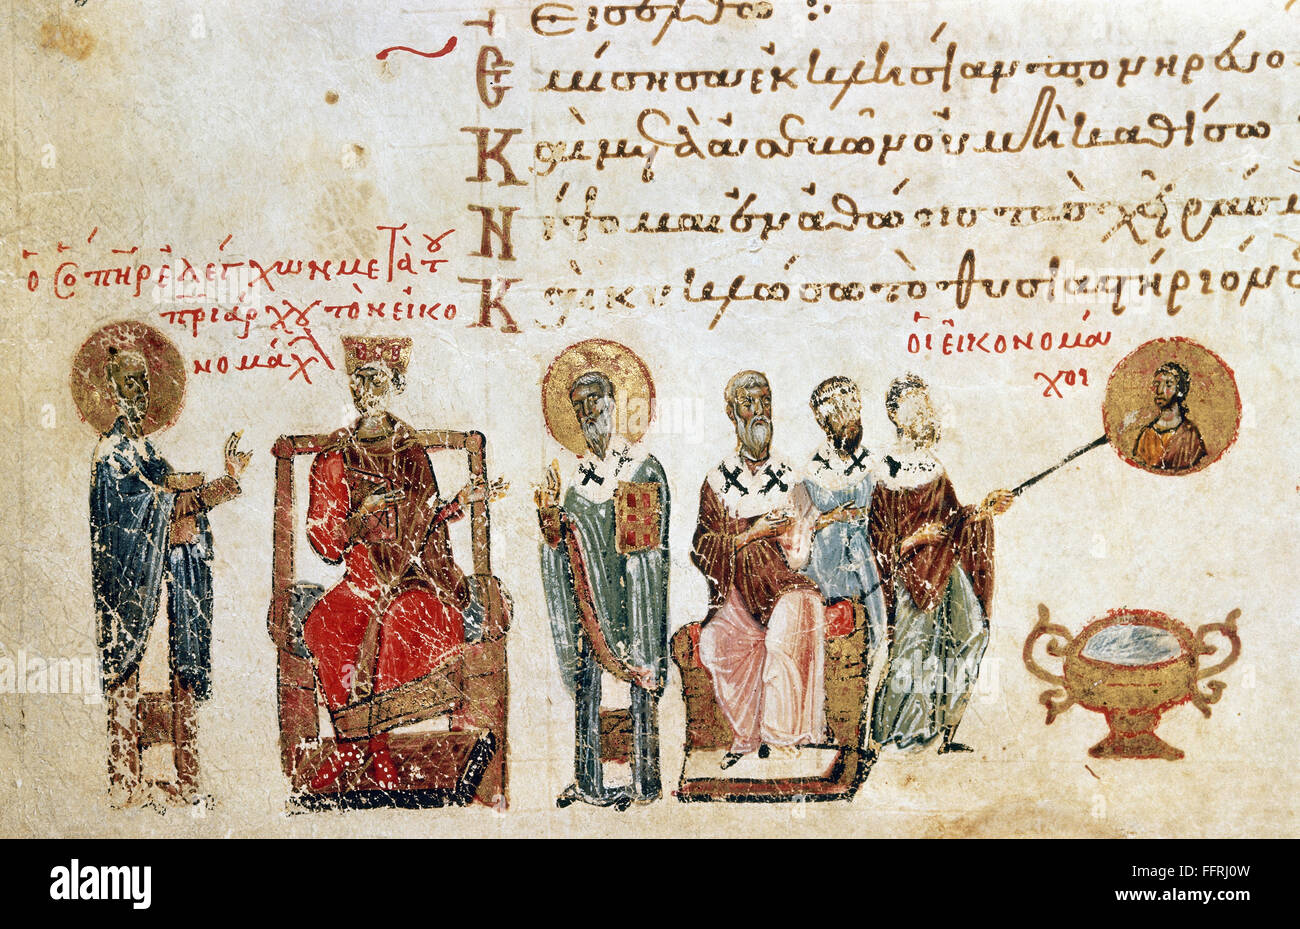 εισελθω :
Ἐμίσησα ἐκκλησίαν πονηρευο
Καὶ ἀσεβῶν οὐ μὴ καθίσω
Νίψομαι ἐν ἀθώοις τὰς χεῖράς μ
Καὶ κυκλώσω τὸ θυσιαστήριον
ὁ πηρ ἐλέγχων μετὰ τοῦ
πριάρχου τὸν εἰκο
νομάχ
οἱ εἰκονομά
χοι
alamy
Image ID: FFRJ0W
www.alamy.com